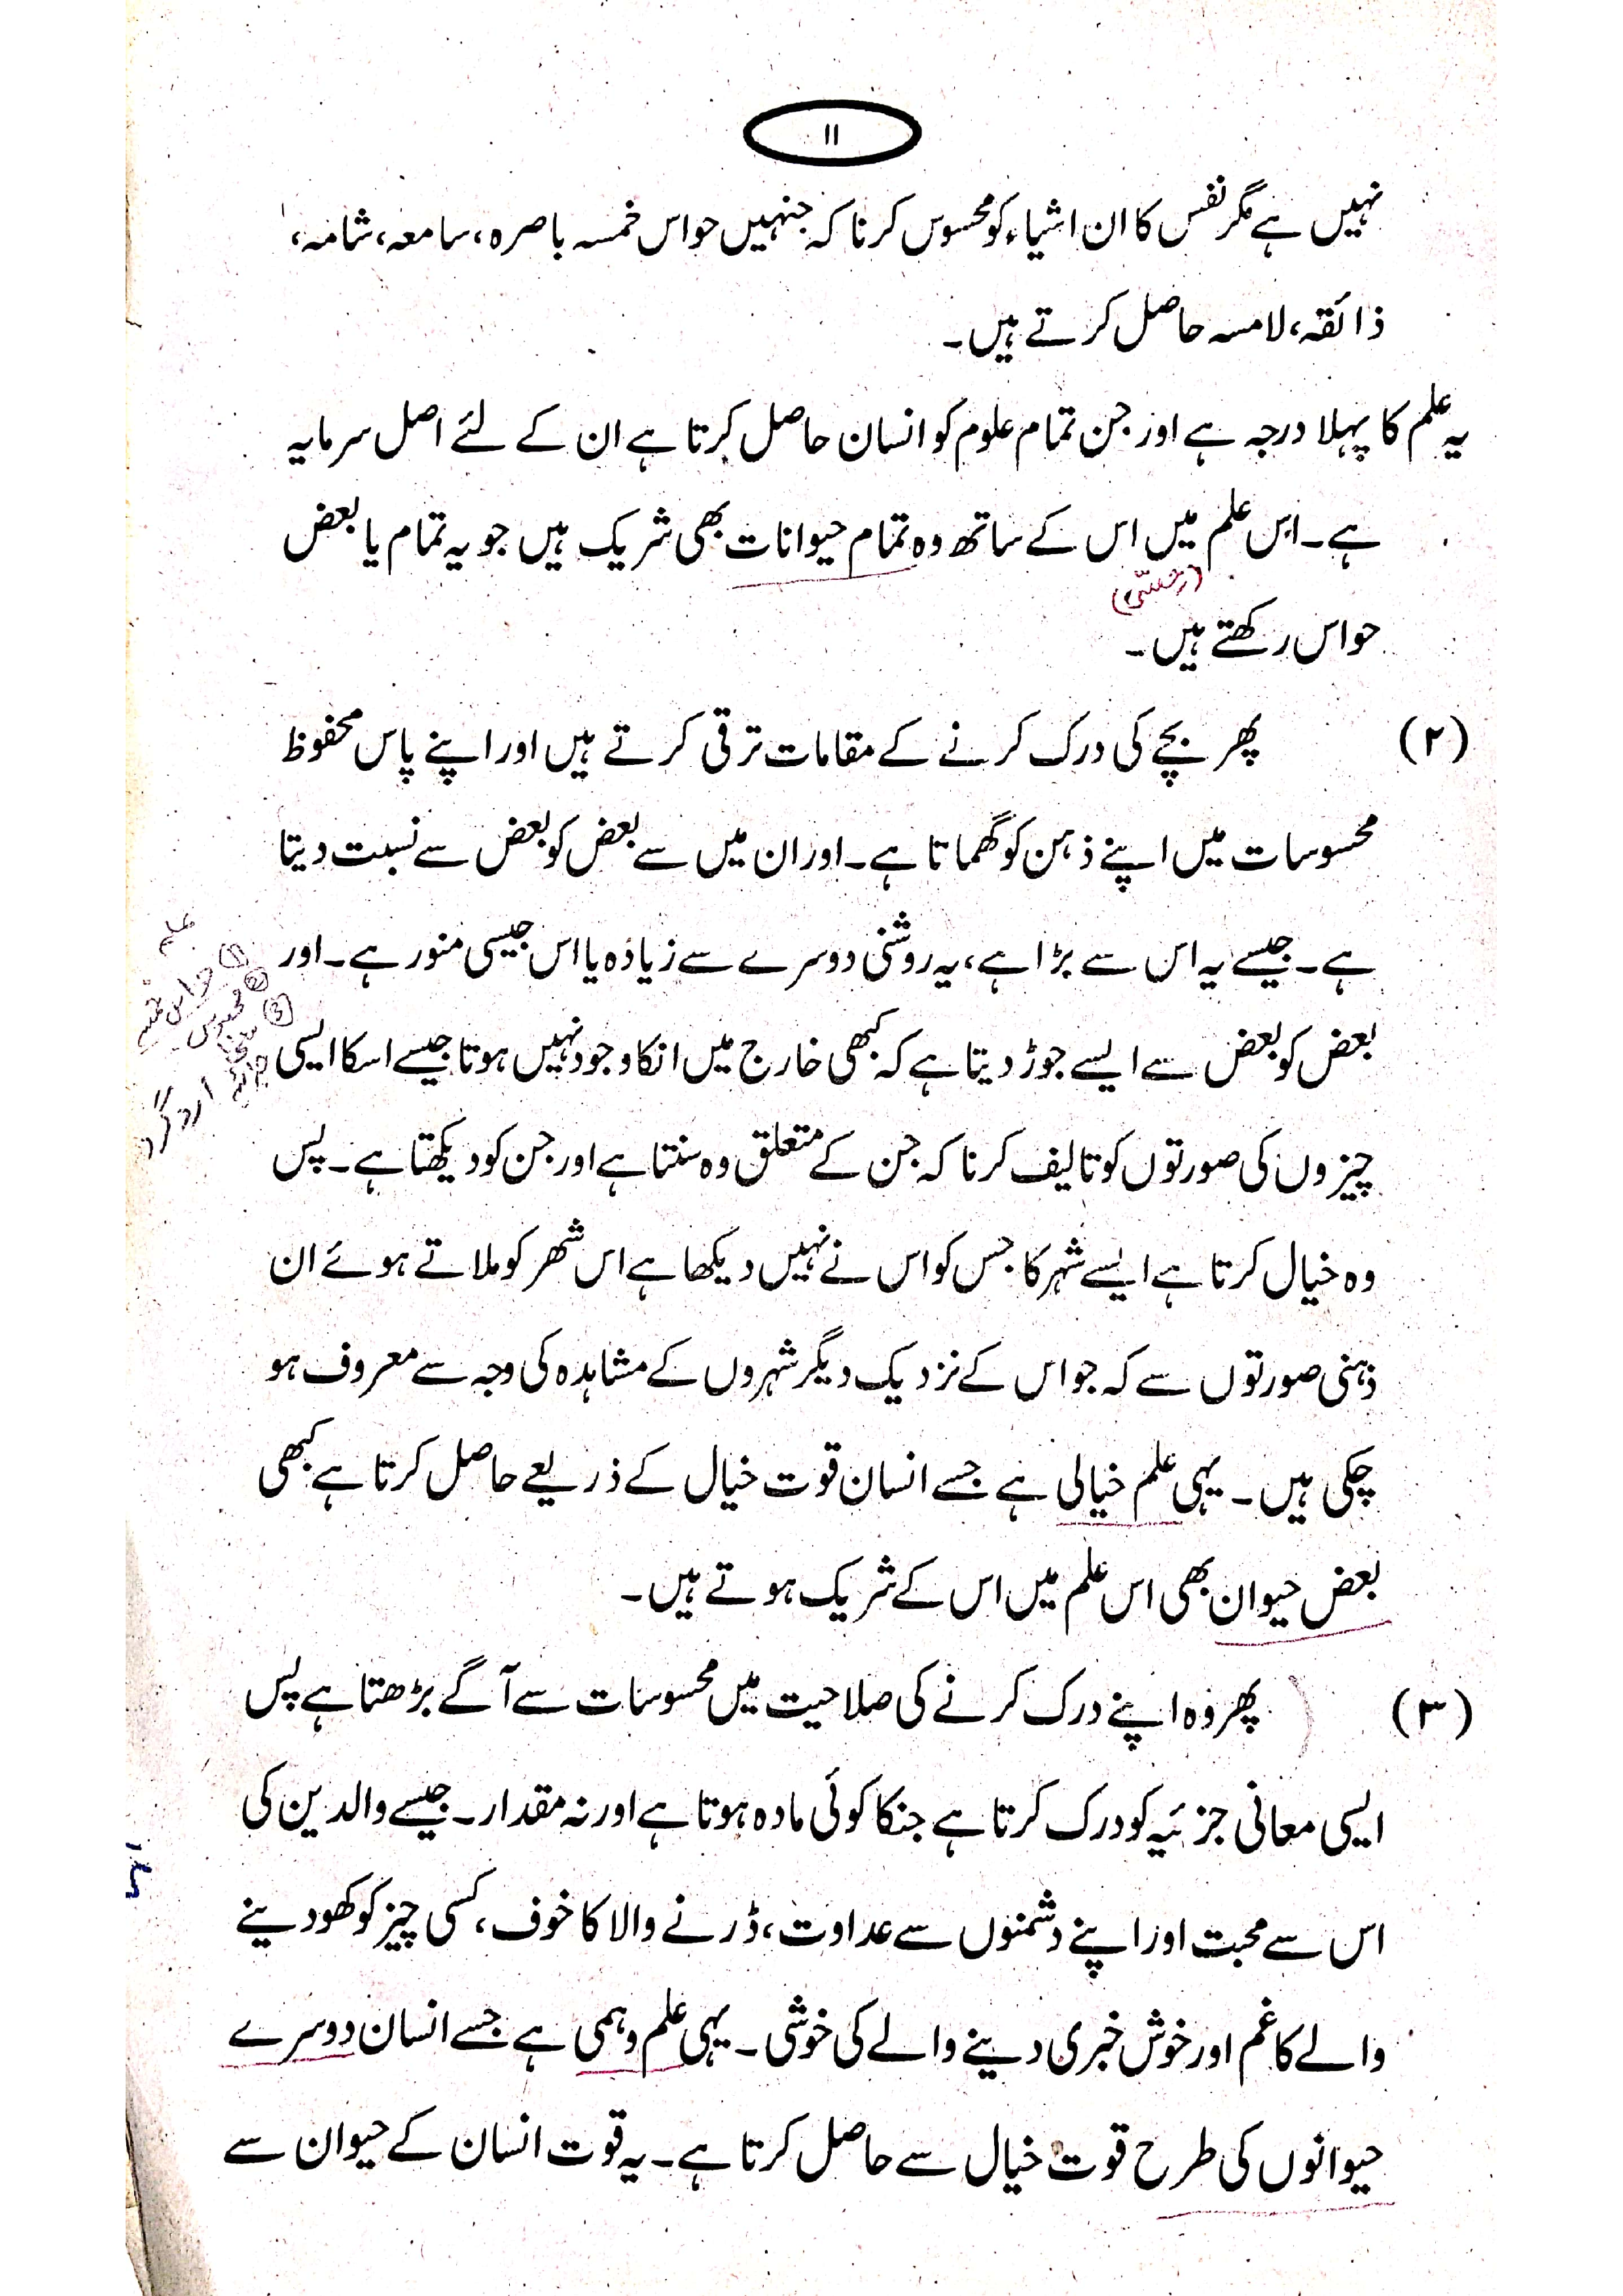 ۱۱
نہیں ہے مگر نفس کا ان اشیاء کو محسوس کرنا کہ جنہیں حواس خمسہ باصرہ، سامعہ، شامہ،
ذائقہ، لامسہ حاصل کرتے ہیں۔
یہ علم کا پہلا درجہ ہے اور جن تمام علوم کو انسان حاصل کرتا ہے ان کے لئے اصل سرمایہ
ہے۔ اس علم میں اس کے ساتھ وہ تمام حیوانات بھی شریک ہیں جو یہ تمام یا بعض
حواس رکھتے ہیں۔
(۲) پھر بچے کی درک کرنے کے مقامات ترقی کرتے ہیں اور اپنے پاس محفوظ
محسوسات میں اپنے ذہن کو گھماتا ہے۔ اور ان میں سے بعض کو بعض سے نسبت دیتا
ہے۔ جیسے یہ اس سے بڑا ہے، یہ روشنی دوسرے سے زیادہ یا اس جیسی منور ہے۔ اور
بعض کو بعض سے ایسے جوڑ دیتا ہے کہ کبھی خارج میں انکا وجود نہیں ہوتا جیسے اسکا ایسی
چیزوں کی صورتوں کو تالیف کرنا کہ جن کے متعلق وہ سنتا ہے اور جن کو دیکھتا ہے۔ پس
وہ خیال کرتا ہے ایسے شہر کا جس کو اس نے نہیں دیکھا ہے اس شھر کو ملاتے ہوئے ان
ذہنی صورتوں سے کہ جو اس کے نزدیک دیگر شہروں کے مشاہدہ کی وجہ سے معروف ہو
چکی ہیں۔ یہی علم خیالی ہے جسے انسان قوت خیال کے ذریعے حاصل کرتا ہے کبھی
بعض حیوان بھی اس علم میں اس کے شریک ہوتے ہیں۔
(۳) پھر وہ اپنے درک کرنے کی صلاحیت میں محسوسات سے آگے بڑھتا ہے پس
ایسی معانی جزئیہ کو درک کرتا ہے جنکا کوئی مادہ ہوتا ہے اور نہ مقدار۔ جیسے والدین کی
اس سے محبت اور اپنے دشمنوں سے عداوت، ڈرنے والا کا خوف، کسی چیز کو کھو دینے
والے کا غم اور خوش خبری دینے والے کی خوشی۔ یہی علم وہمی ہے جسے انسان دوسرے
حیوانوں کی طرح قوت خیال سے حاصل کرتا ہے۔ یہ قوت انسان کے حیوان سے
علم
① حواس خمسہ
② محسوس
③
ارد گرد